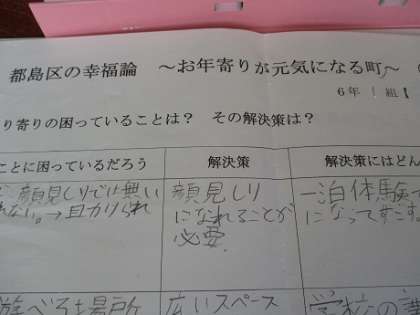 都島区の幸福論 ～お年寄りが元気になる町～
6年 1組【
り寄りの困っていることは？ その解決策は？
ことに困っているだろう
解決策
解決策にはどん
顔見しりでは無い
れない。→助けられ
顔見しり
になれることが
必要
一泊体験
になってすごす。
遊べる場所
広いスペース
学校の